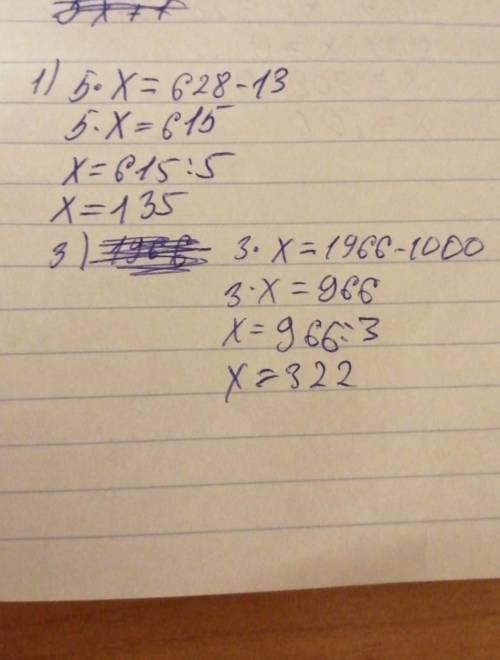 1) 5·X=628-13
5·X=615
X=615:5
X=135
3) 3·X=1966-1000
3·X=966
X=966:3
X=322